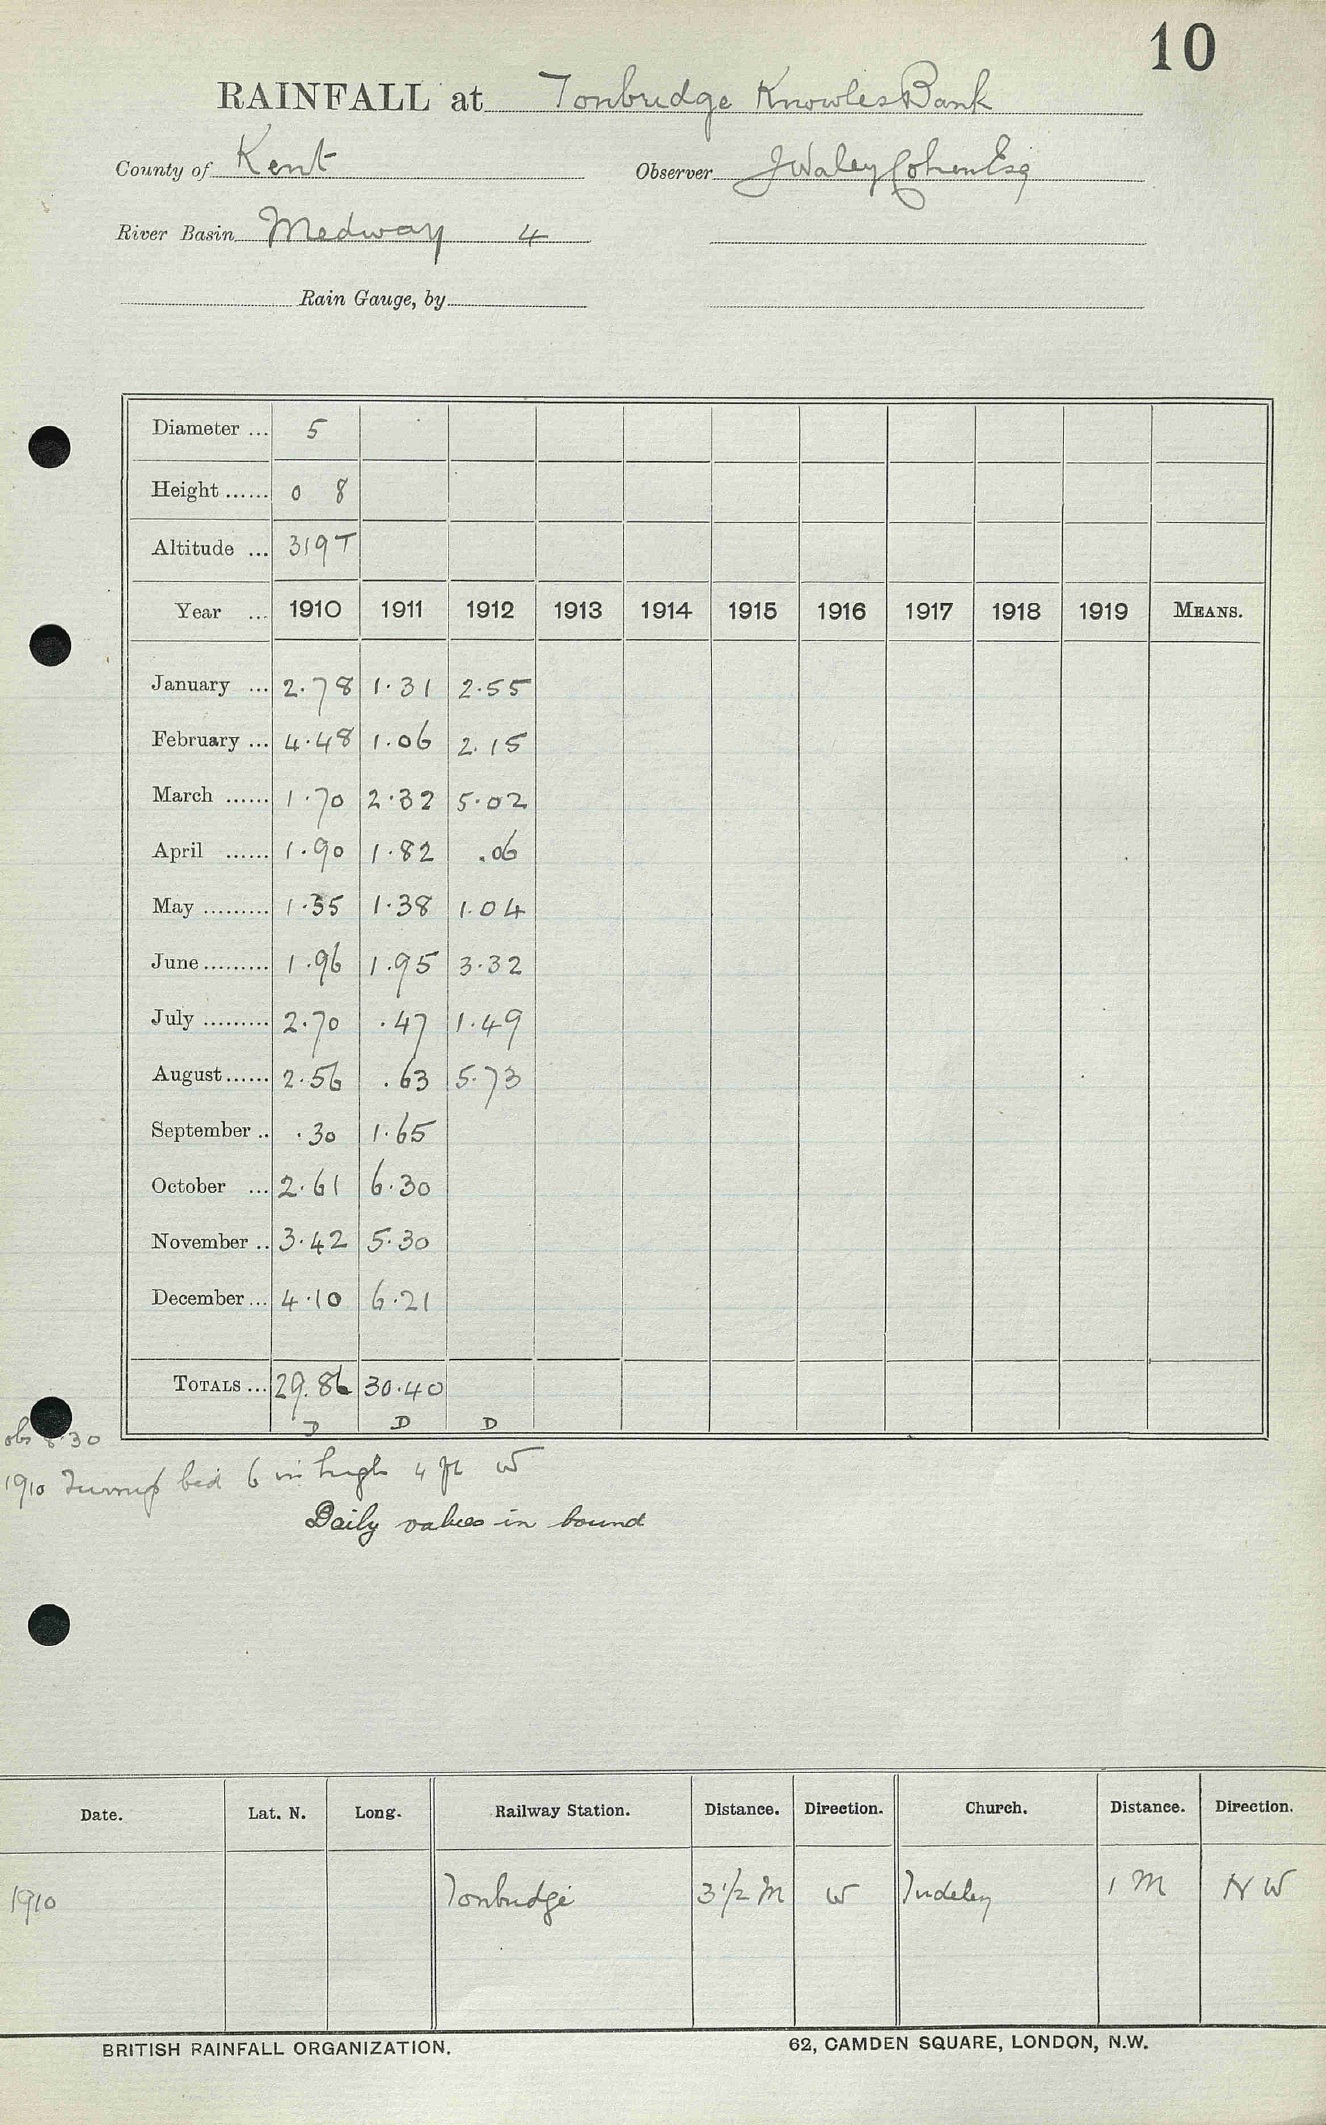 10
RAINFALL at Tonbridge Knowles Bank
County of Kent Observer J Waley Cohen Esq
River Basin Medway 4
Rain Gauge, by
Diameter ... 5
Height ...... 0 8
Altitude ... 319 T
Year ... 1910 1911 1912 1913 1914 1915 1916 1917 1918 1919 MEANS.
January ... 2.78 1.31 2.55
February ... 4.48 1.06 2.15
March ...... 1.70 2.32 5.02
April ...... 1.90 1.82 .06
May ......... 1.35 1.38 1.04
June ......... 1.96 1.95 3.32
July ......... 2.70 .47 1.49
August ...... 2.56 .63 5.73
September .. .30 1.65
October ... 2.61 6.30
November .. 3.42 5.30
December ... 4.10 6.21
TOTALS ... 29.86 30.40
D D D
obs 8.30
1910 Turnip bed 6 in high 4 ft W
Daily values in bound
Date. Lat. N. Long. Railway Station. Distance. Direction. Church. Distance. Direction.
1910 Tonbridge 3 1/2 M W Tudeley 1 M NW
BRITISH RAINFALL ORGANIZATION. 62, CAMDEN SQUARE, LONDON, N.W.